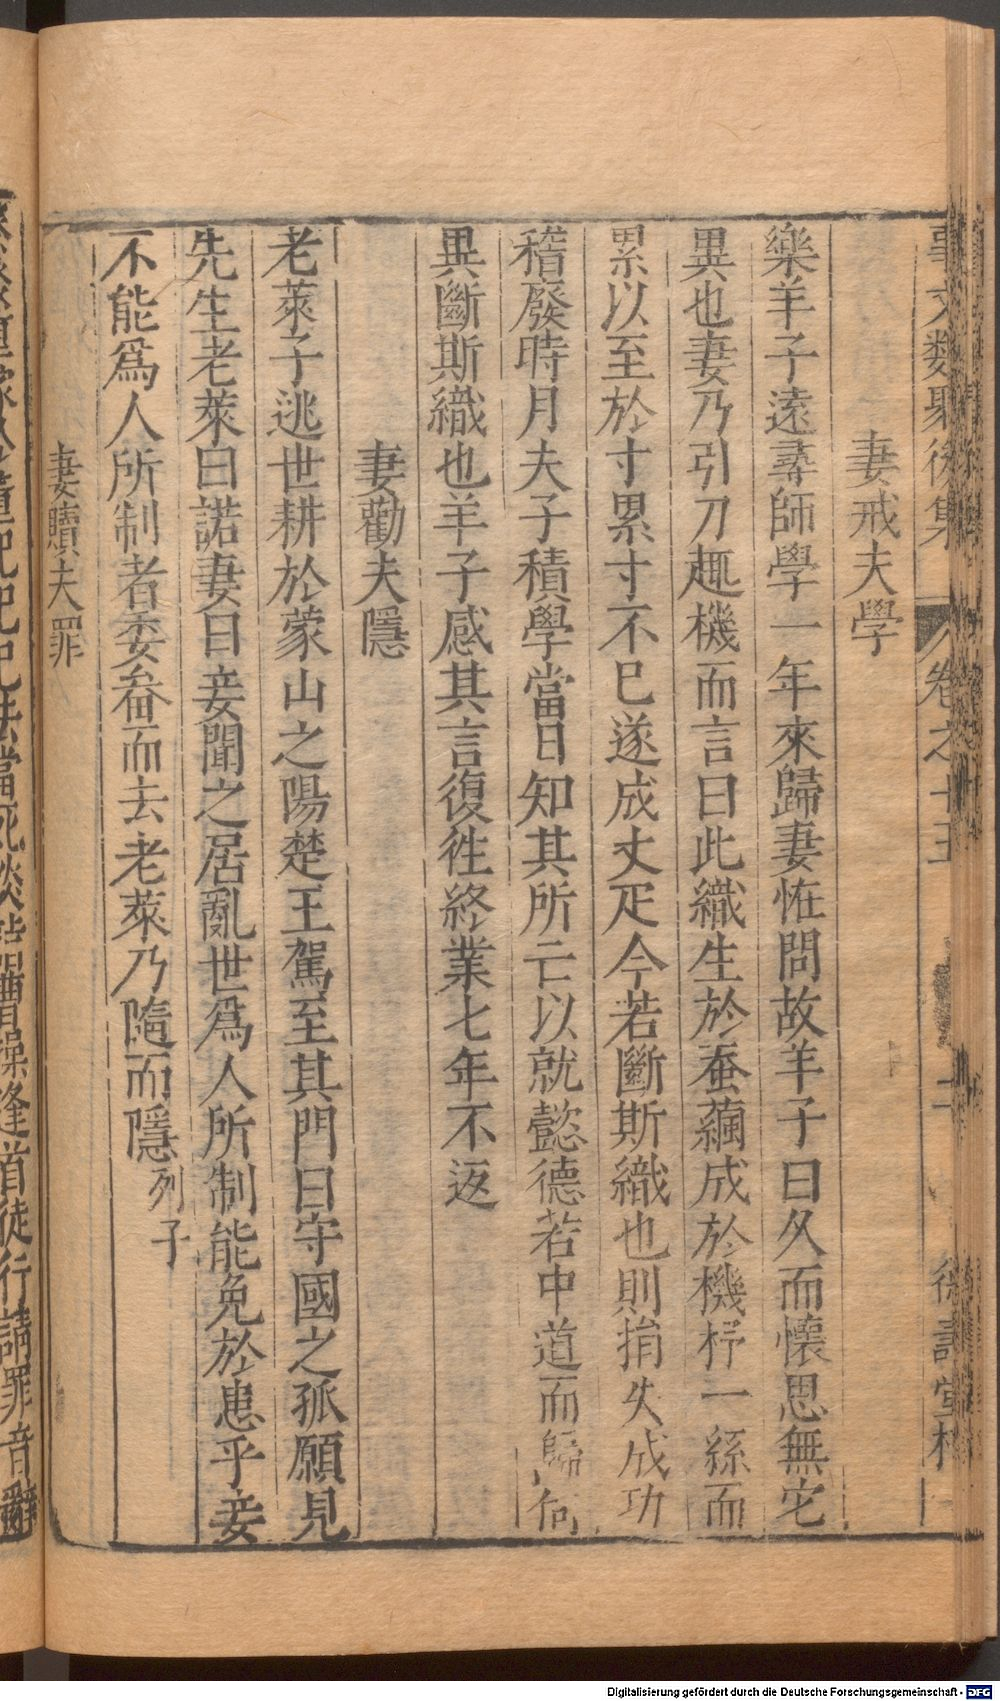 事文類聚後集 卷之十五 二 德壽堂梓
妻戒夫學
樂羊子遠尋師學一年來歸妻恠問故羊子曰久而懷思無它
異也妻乃引刀趣機而言曰此織生於蚕繭成於機杼一絲而
累以至於寸累寸不已遂成丈疋今若斷斯織也則捐失成功
稽廢時月夫子積學當日知其所亡以就懿德若中道而歸何
異斷斯織也羊子感其言復徃終業七年不返
妻勸夫隱
老萊子逃世耕於蒙山之陽楚王駕至其門曰守國之孤願見
先生老萊曰諾妻曰妾聞之居亂世爲人所制能免於患乎妾
不能爲人所制者委畚而去老萊乃隨而隱列子
妻贖夫罪
法當死 蓬首徒行請罪音辭
Digitalisierung gefördert durch die Deutsche Forschungsgemeinschaft - DFG